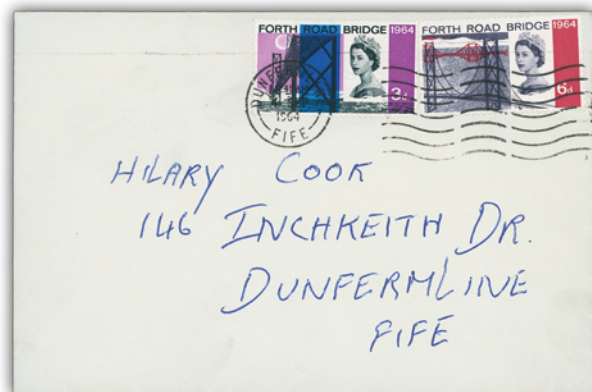 FORTH ROAD BRIDGE 1964
3d
FORTH ROAD BRIDGE 1964
6d
1964
FIFE
HILARY COOK
146 INCHKEITH DR.
DUNFERMLINE
FIFE